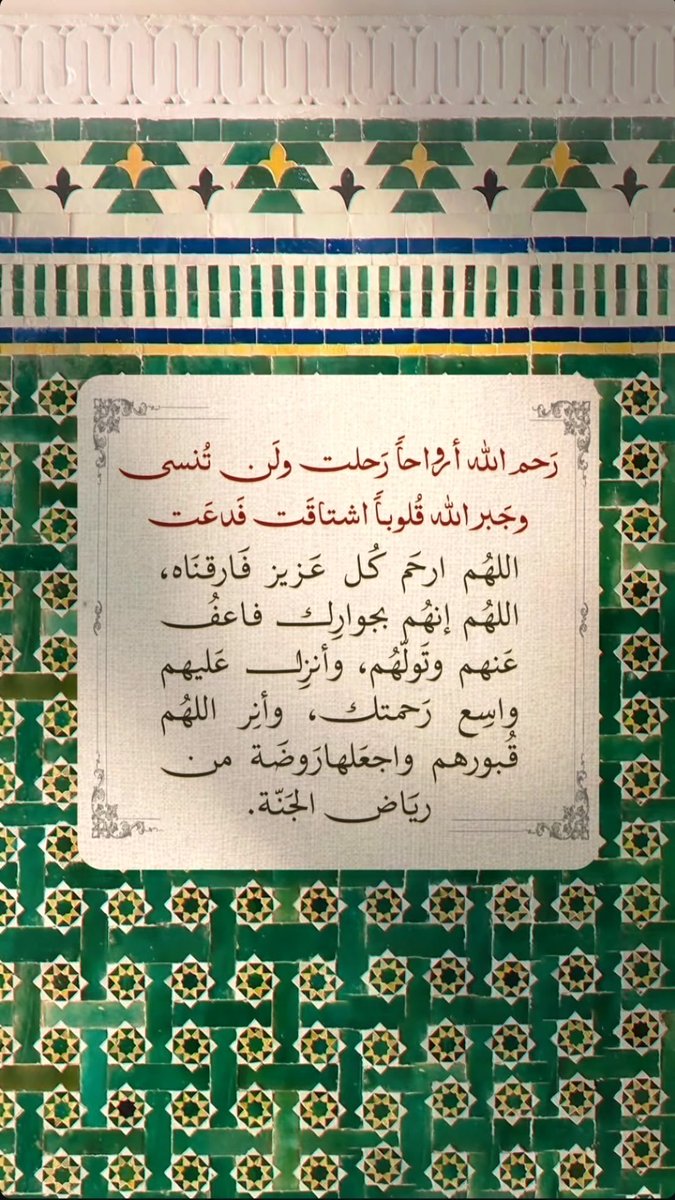 رَحم الله أرواحاً رَحلت ولَن تُنسى
وجَبر الله قُلوباً اشتاقَت فَدعَت
اللهُم ارحَم كُل عَزيز فَارقنَاه،
اللهُم إنهُم بجوارِك فاعفُ
عَنهم وتَولّهُم، وأنزِل عَليهم
واسِع رَحمتك، وأنِر اللهُم
قُبورهم واجعَلهارَوضَة من
ريَاض الجَنّة.